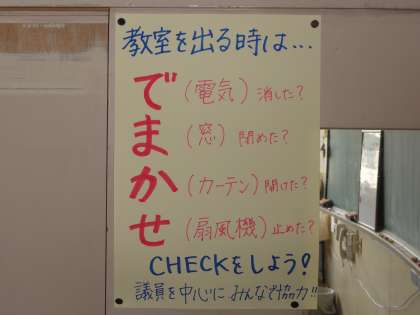 教室を出る時は...
で (電気) 消した?
ま (窓) 閉めた?
か (カーテン) 開けた?
せ (扇風機) 止めた?
CHECKをしよう!
議員を中心に みんなで協力!!